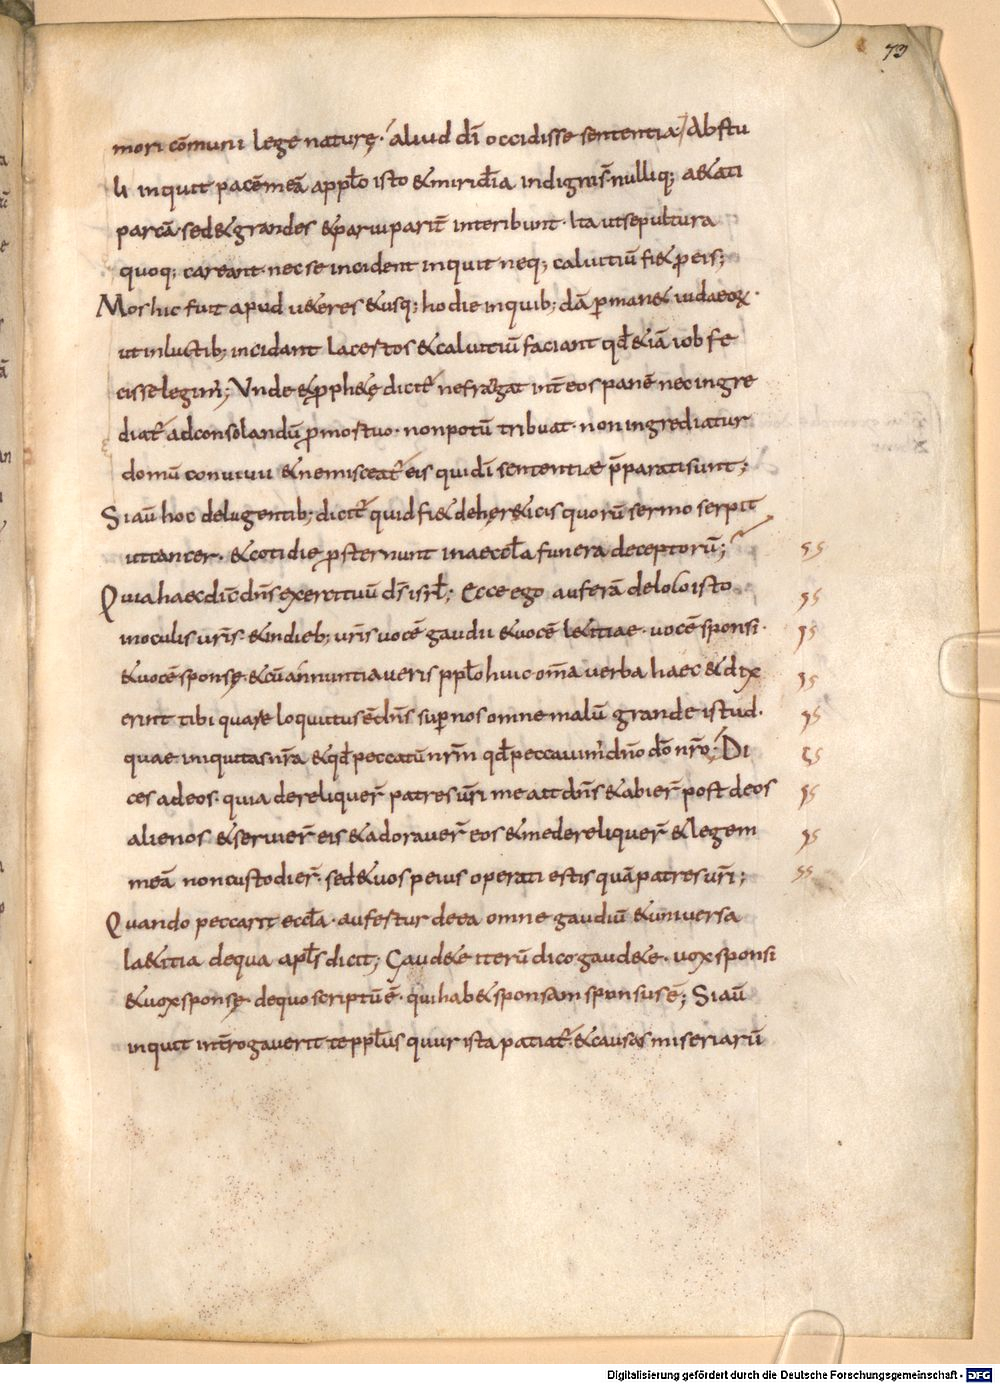 73
mori cōmuni lege naturę· aliud dī occidisse sententia; Abstu
li inquit pacē meā a pplo isto & miridia indignis nulliq; a&ati
parcā· sed & grandes & parui parit̄ interibunt· Ita ut sepultura
quoq; careant· nec se incident inquit neq; caluitiū fi& p eis;
Mos hic fuit apud u&eres & usq; hodie in quib;dā pman& iudaeoꝝ·
ut in luctib; incidant lacertos & caluitiū faciant qđ & iā iob fe
cisse legim̄; Unde & pph&ę dicit̄ ne frangat int̄ eos panē nec ingre
diat̄ ad consolandū p mortuo· non potū tribuat· non ingrediatur
domū conuiuii & ne misceat̄ eis qui dī sententiae p̄parati sunt;
Si aū hoc de lugentib; dicit̄ quid fi& de her&icis quorū sermo serpit
ut cancer· & cotidie psternunt in aeccła funera deceptorū;
Quia haec dic̄ dn̄s exercituū ds̄ isrł; Ecce ego auferā de loco isto
in oculis ur̄is & in dieb; ur̄is uocē gaudii & uocē l&itiae· uocē sponsi·
& uocē sponsę· & cū annuntiaueris pplo huic om̄a uerba haec & dix
erint tibi quare loquutus ē dn̄s sup nos omne malū grande istud·
quae iniquitas nr̄a & qđ peccatū nr̄m qđ peccauim̄ dn̄o dō nr̄o; Di
ces ad eos· quia dereliquer̄ patres ur̄i me ait dn̄s & abier̄ post deos
alienos & seruier̄ eis & adorauer̄ eos & me dereliquer̄ & legem
meā non custodier̄· sed & uos peius operati estis quā patres ur̄i;
Quando peccarit eccła· aufertur de ea omne gaudiū & uniuersa
la&itia de qua apłs dicit; Gaud&e iterū dico gaud&e· uox sponsi
& uox sponsę· de quo scriptū ē· qui hab& sponsam sponsus ē; Si aū
inquit int̄rogauerit te ppłus quur ista patiat̄· & causas miseriarū
Digitalisierung gefördert durch die Deutsche Forschungsgemeinschaft - DFG